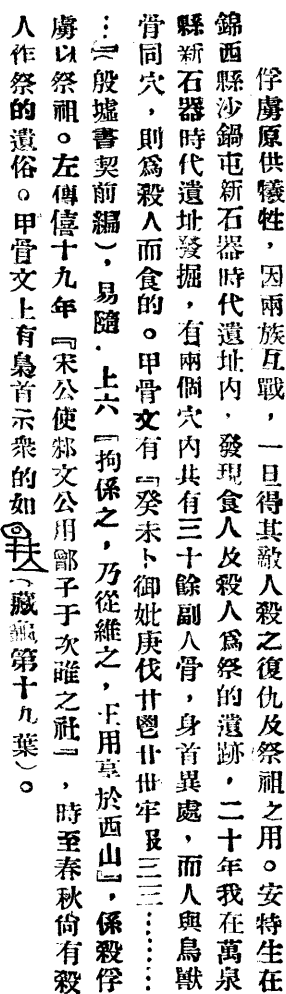 俘虜原供犧牲，因兩族互戰，一旦得其敵人殺之復仇及祭祖之用。安特生在
錦西縣沙鍋屯新石器時代遺址內．發現食人及殺人爲祭的遺跡，二十年我在萬泉
縣新石器時代遺址發掘，有兩個穴內共有三十餘副人骨，身首異處，而人與鳥獸
骨同穴，則爲殺人而食的。甲骨文有『癸未卜御妣庚伐廿鬯卅卅牢𠬝三三………
…』（殷墟書契前編），易隨．上六『拘係之，乃從維之，王用享於西山』，係殺俘
虜以祭祖。左傳僖十九年『宋公使邾文公用鄫子于次睢之社』，時至春秋尙有殺
人作祭的遺俗。甲骨文上有梟首示衆的如（藏龜第十九葉）。